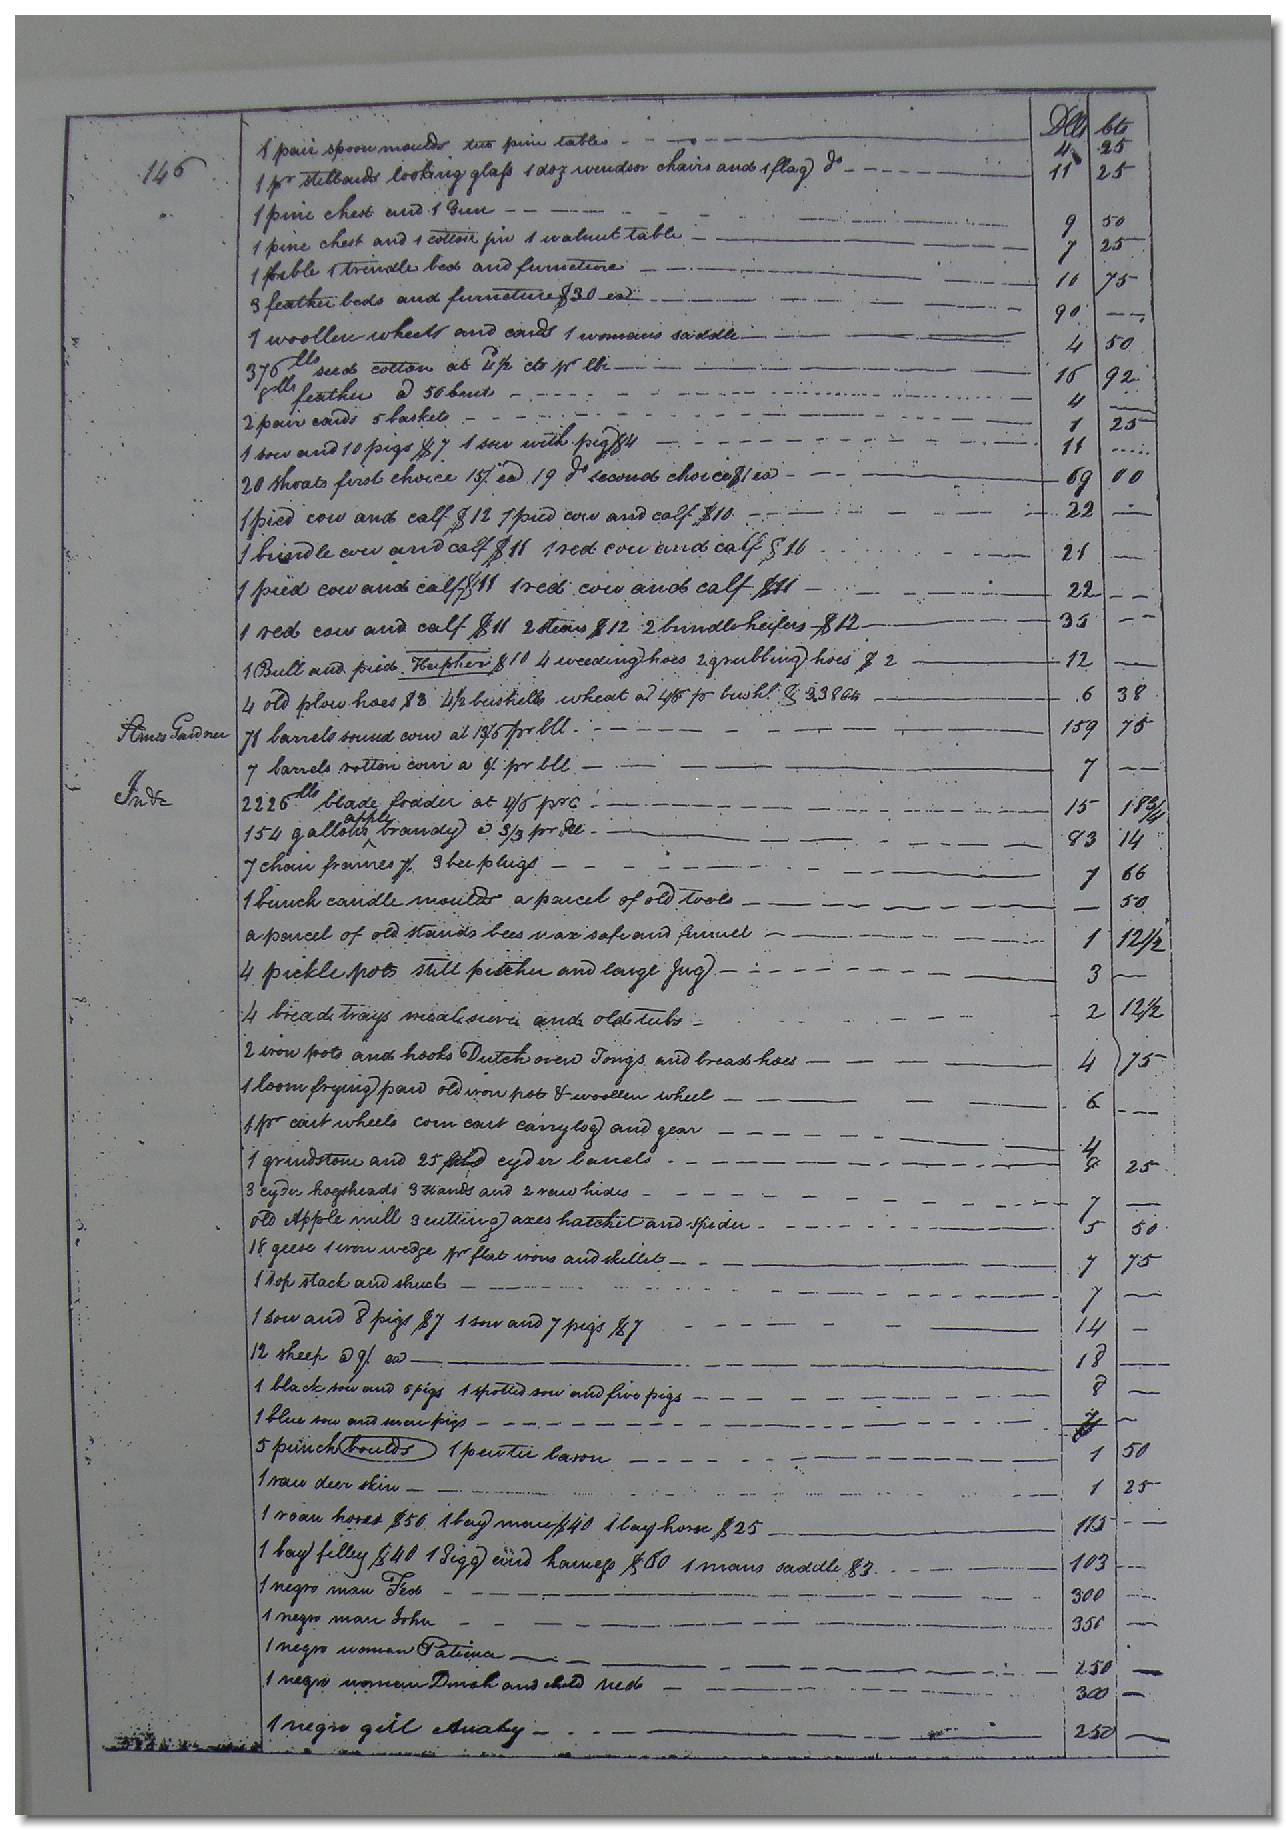 Dlls Cts
146
1 pair spoon moulds two pine tables 4 25
1 pr stilliards looking glass 1 doz windsor chairs and 1 flag do 11 25
1 pine chest and 1 Gun 9 50
1 pine chest and 1 cotton jin 1 walnut table 7 25
1 table 1 trundle bed and furniture 10 75
3 feather beds and furniture $30 ea 90
1 woollen wheels and cards 1 womans saddle 4 50
376 lbs seed cotton at 4½ cts pr lb 16 92
8 lbs feather @ 50 cents 4
2 pair cards 5 baskets 1 25
1 sow and 10 pigs $7 1 sow with pigs $4 11
20 shoats first choice 15/ ea 19 do second choice $1 ea 69 00
1 pied cow and calf $12 1 pied cow and calf $10 22
1 brindle cow and calf $11 1 red cow and calf $10 21
1 pied cow and calf $11 1 red cow and calf $11 22
1 red cow and calf $11 2 stears $12 2 brindle heifers $12 35
1 Bull and pied Heipher $10 4 weeding hoes 2 grubbing hoes $2 12
4 old plow hoes $3 4½ bushells wheat at 4/6 pr bushl 6 38
Ames Gardner 71 barrels sound corn at 13/6 pr bll 159 75
7 barrels rotten corn a 6/ pr bll 7
Inde 2226 lbs blade fodder at 4/6 pr C 15 18¾
154 gallons apple brandy @ 3/3 pr 83 14
7 chair frames 7/ 3 bee plugs 1 66
1 bunch candle moulds a parcel of old tools 50
a parcel of old stands bees wax safe and funnel 1 12½
4 pickle pots still pitcher and large Jug 3
4 bread trays meal sieve and old tubs 2 12½
2 iron pots and hooks Dutch oven Tongs and bread hoes 4 75
1 loom frying pan old iron pots & woollen wheel 6
1 pr cart wheels corn cart carrylog and gear 4
1 grindstone and 25 cyder barrels 8 25
3 cyder hogsheads 3 stands and 2 raw hides 7
old Apple mill 3 cutting axes hatchet and spider 5 50
18 geese 1 iron wedge pr flat irons and skillet 7 75
1 top stack and shuck 7
1 sow and 8 pigs $7 1 sow and 7 pigs $7 14
12 sheep @ 9/ ea 18
1 black sow and 5 pigs 1 spotted sow and five pigs 8
1 blue sow and seven pigs
5 punch boulds 1 pewter bason 1 50
1 raw deer skin 1 25
1 roan horse $50 1 bay mare $40 1 bay horse $25 115
1 bay filley $40 1 Gigg and harness $60 1 mans saddle $3 103
1 negro man Fed 300
1 negro man John 350
1 negro woman Patience 250
1 negro woman Dinah and child Ned 300
1 negro gill Anaky 250